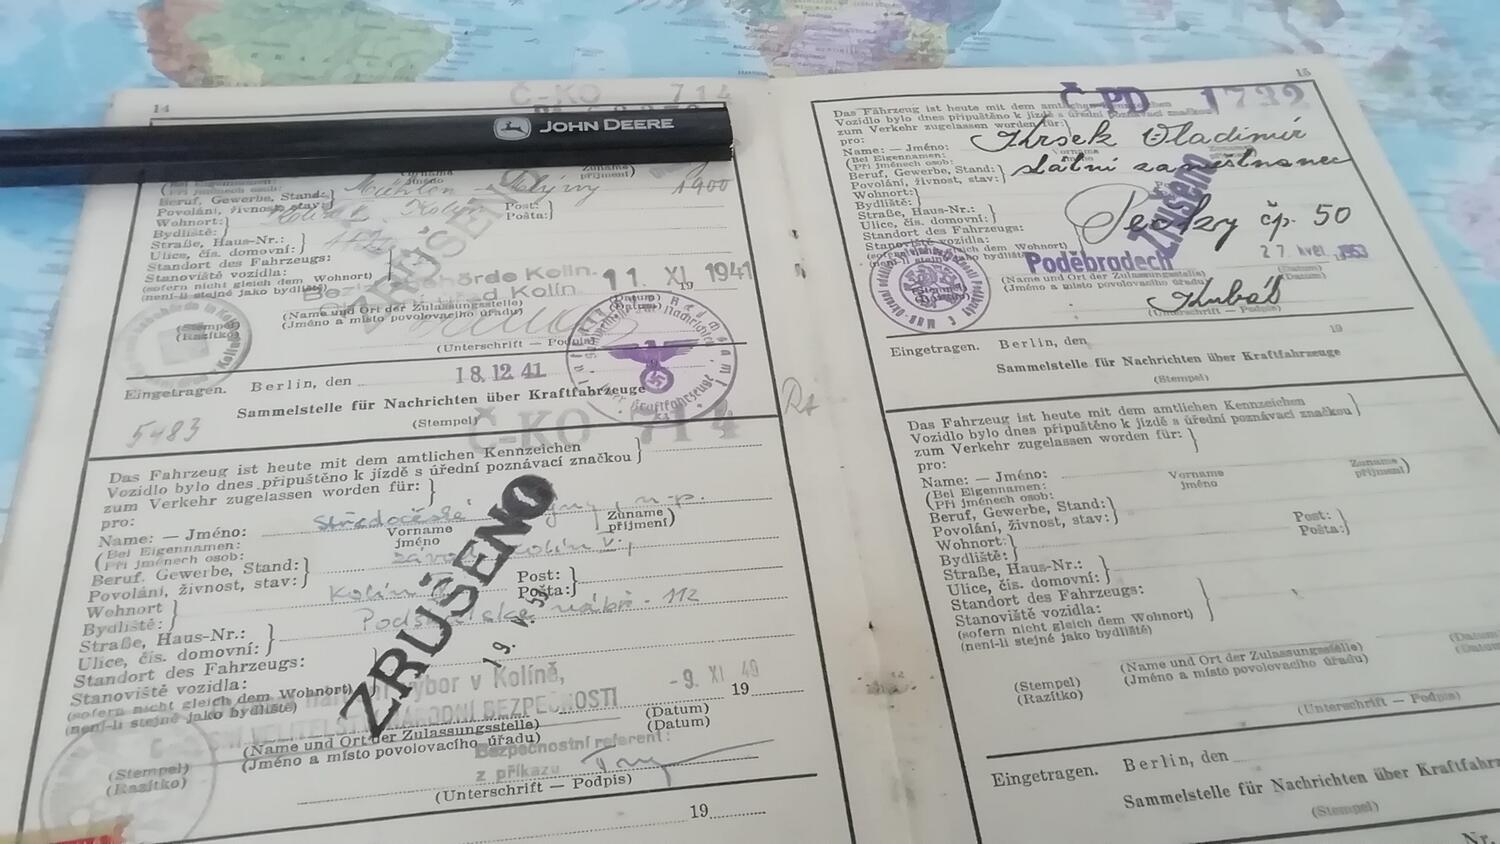 14
Č-KO 714
JOHN DEERE
Name: — Jméno:
1900
Beruf, Gewerbe, Stand:
Povolání, živnost, stav:
Post:
Pošta:
Wohnort:
Bydliště:
Straße, Haus-Nr.:
Ulice, čís. domovní:
Standort des Fahrzeugs:
Stanoviště vozidla:
(sofern nicht gleich dem Wohnort)
(není-li stejné jako bydliště)
ZRUŠENO
Kolin. 11. XI. 1941
(Name und Ort der Zulassungsstelle)
(Jméno a místo povolovacího úřadu)
(Datum)
(Datum)
(Stempel)
(Razítko)
(Unterschrift — Podpis)
Eingetragen. Berlin, den 18.12.41
Sammelstelle für Nachrichten über Kraftfahrzeuge
(Stempel)
5483
Č-KO 714
Das Fahrzeug ist heute mit dem amtlichen Kennzeichen
Vozidlo bylo dnes připuštěno k jízdě s úřední poznávací značkou
zum Verkehr zugelassen worden für:
pro:
Name: — Jméno: Středočeské n. p.
(Bei Eigennamen: Vorname Zuname
Při jménech osob: jméno příjmení)
Beruf, Gewerbe, Stand: závod Kolín V.,
Povolání, živnost, stav:
Post:
Pošta:
Wohnort Kolín
Bydliště:
Straße, Haus-Nr.: nábř. 112
Ulice, čís. domovní:
Standort des Fahrzeugs:
Stanoviště vozidla:
(sofern nicht gleich dem Wohnort)
(není-li stejné jako bydliště)
ZRUŠENO
výbor v Kolíně,
VELITELSTVÍ NÁRODNÍ BEZPEČNOSTI
-9. XI. 49 19
(Name und Ort der Zulassungsstelle)
(Jméno a místo povolovacího úřadu)
(Datum)
(Datum)
Bezpečnostní referent:
z příkazu
(Stempel)
(Razítko)
(Unterschrift — Podpis)
19
15
Č PD 1732
Das Fahrzeug ist heute mit dem amtlichen Kennzeichen
Vozidlo bylo dnes připuštěno k jízdě s úřední poznávací značkou
zum Verkehr zugelassen worden für:
pro:
Name: — Jméno: Krsek Vladimír
(Bei Eigennamen:
Při jménech osob:
Beruf, Gewerbe, Stand: státní zaměstnanec
Povolání, živnost, stav:
Wohnort:
Bydliště:
Straße, Haus-Nr.: Pečky čp. 50
Ulice, čís. domovní:
Standort des Fahrzeugs:
Stanoviště vozidla:
(sofern nicht gleich dem Wohnort)
(není-li stejné jako bydliště)
Zrušeno
Poděbradech 27. květ. 1953
(Name und Ort der Zulassungsstelle)
(Jméno a místo povolovacího úřadu)
(Datum)
(Datum)
(Unterschrift — Podpis)
Eingetragen. Berlin, den 19
Sammelstelle für Nachrichten über Kraftfahrzeuge
(Stempel)
Das Fahrzeug ist heute mit dem amtlichen Kennzeichen
Vozidlo bylo dnes připuštěno k jízdě s úřední poznávací značkou
zum Verkehr zugelassen worden für:
pro:
Name: — Jméno:
(Bei Eigennamen: Vorname Zuname
Při jménech osob: jméno příjmení)
Beruf, Gewerbe, Stand:
Povolání, živnost, stav:
Post:
Pošta:
Wohnort:
Bydliště:
Straße, Haus-Nr.:
Ulice, čís. domovní:
Standort des Fahrzeugs:
Stanoviště vozidla:
(sofern nicht gleich dem Wohnort)
(není-li stejné jako bydliště)
(Name und Ort der Zulassungsstelle)
(Jméno a místo povolovacího úřadu)
(Stempel)
(Razítko)
(Unterschrift — Podpis)
Eingetragen. Berlin, den
Sammelstelle für Nachrichten über
(Stempel)
Nr.